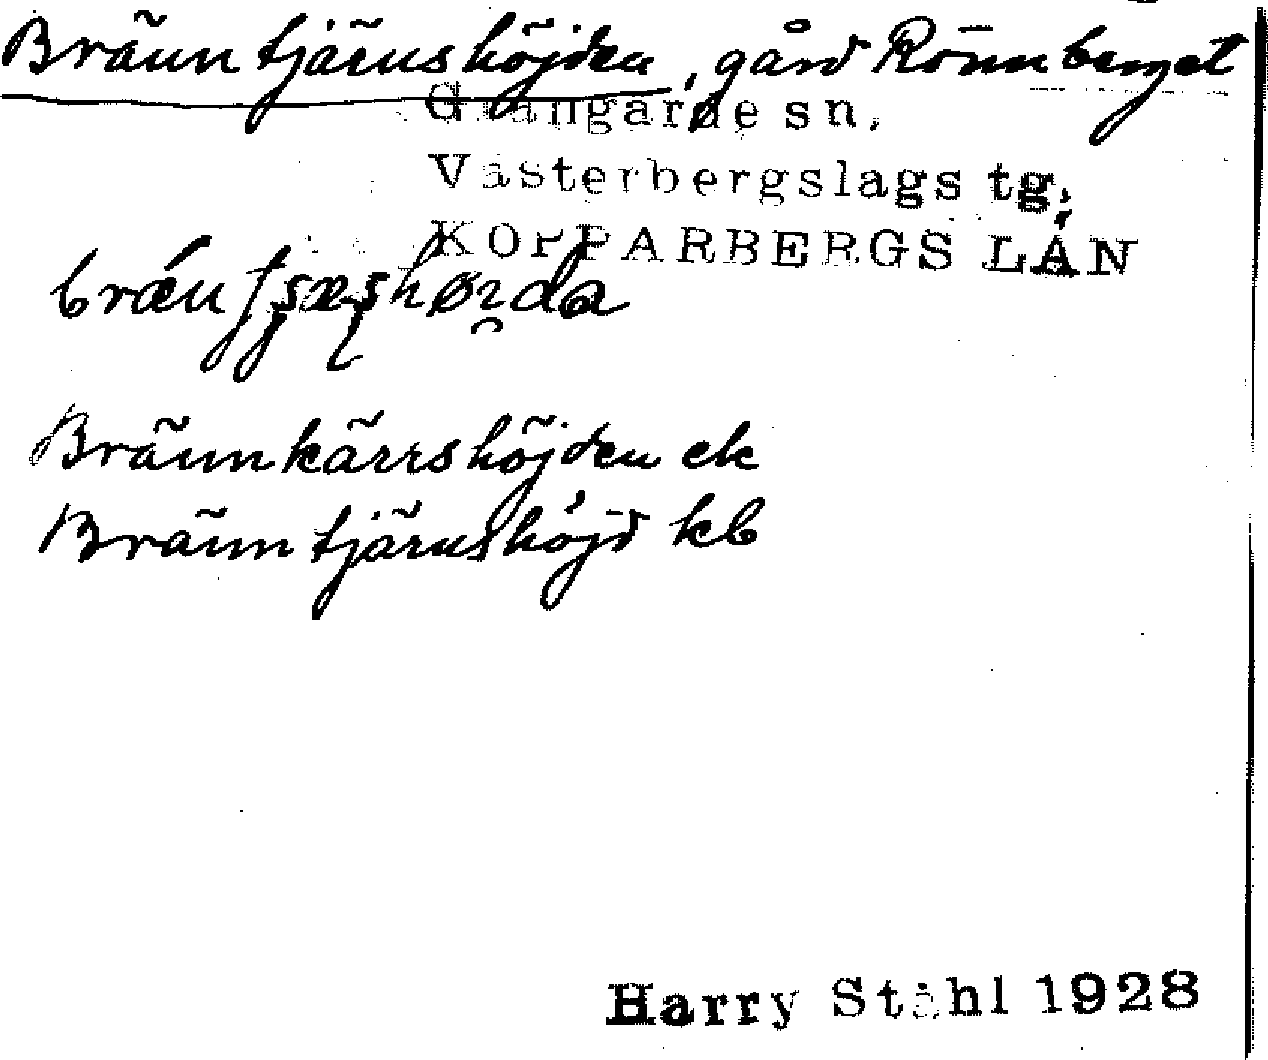 Bränntjärnshöjden, gård Rönnberget
Grangärde sn.
Västerbergslags tg.
KOPPARBERGS LÄN
Brännkärrshöjden ek
Bränntjärnshöjd kb
Harry Ståhl 1928